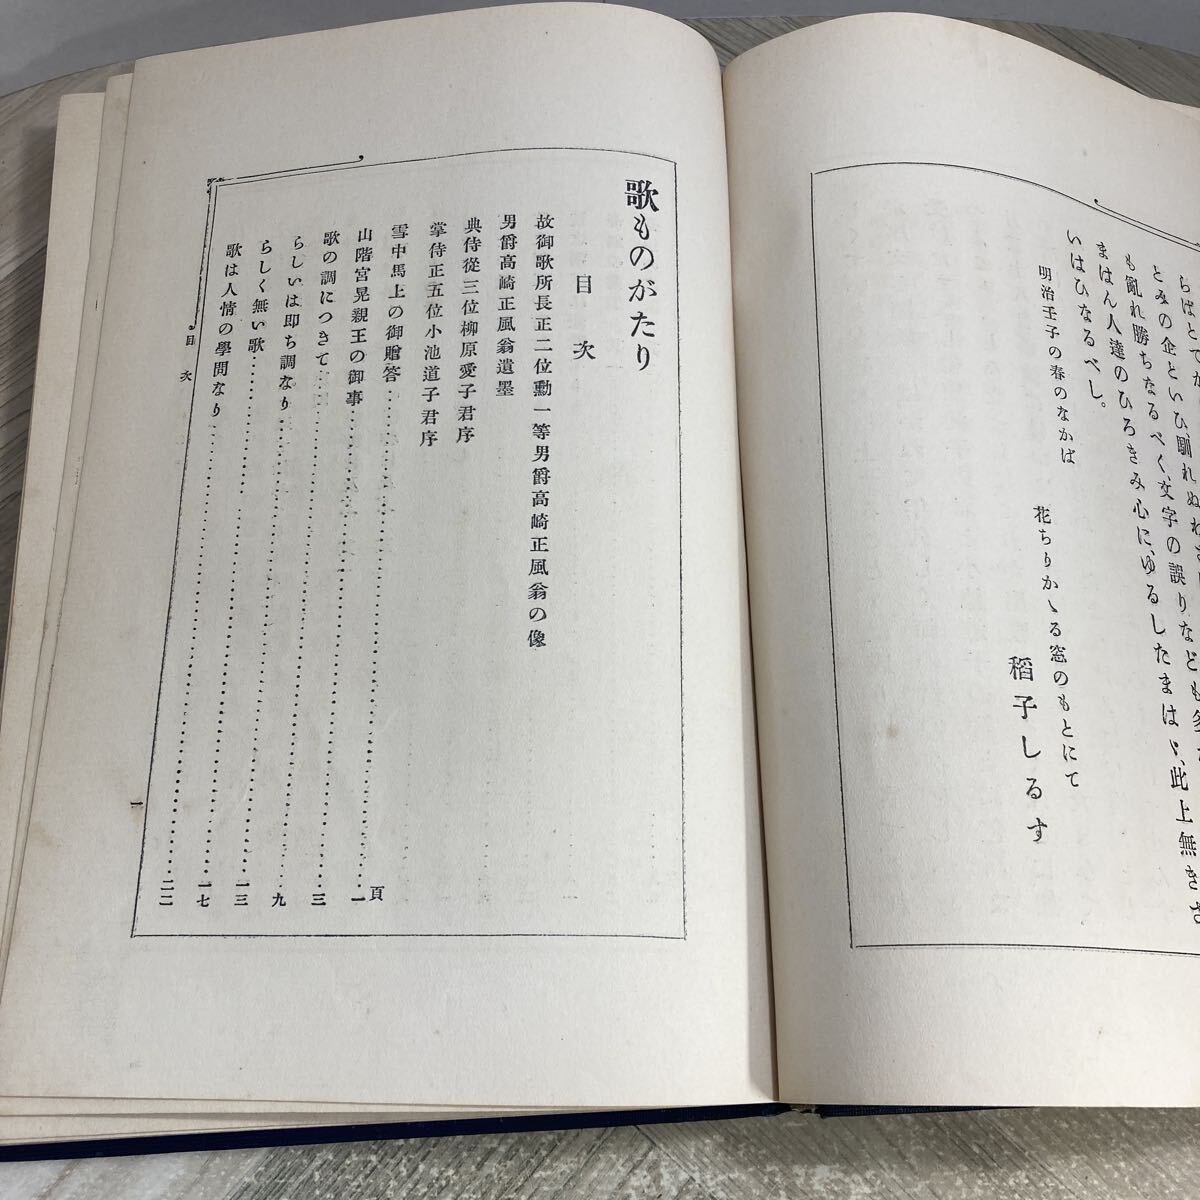 らばとてか
とみの企といひ、馴れぬわざ
も亂れ勝ちなるべく、文字の誤りなども多
まはん人達のひろきみ心に、ゆるしたまはゞ、此上無きさ
いはひなるべし。
明治壬子の春のなかば
花ちりかゝる窓のもとにて
稻子しるす
歌ものがたり
目次
故御歌所長正二位勳一等男爵高崎正風翁の像
男爵高崎正風翁遺墨
典侍從三位柳原愛子君序
掌侍正五位小池道子君序
雪中馬上の御贈答……頁一
山階宮晃親王の御事……三
歌の調につきて……九
らしいは即ち調なり……一三
らしく無い歌……一七
歌は人情の學問なり……二二
目次
一